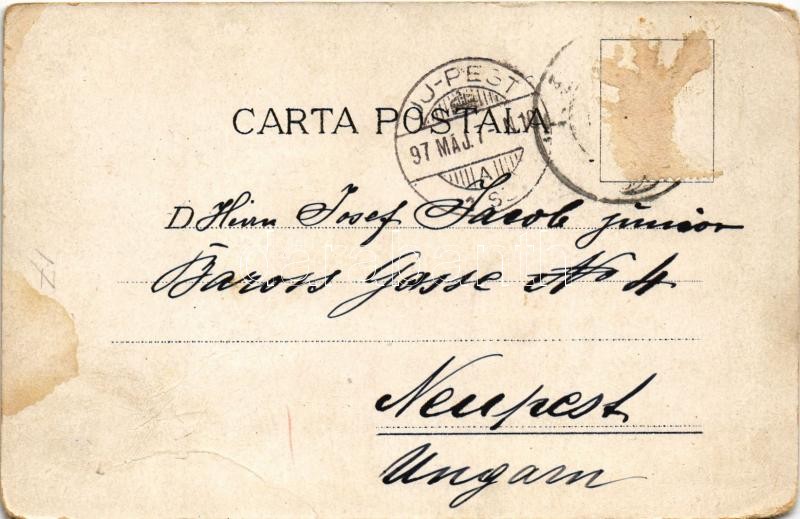 UJ-PEST
97 MÁJ. 7
A
CARTA POSTALA
D Herrn Josef Jacob junior
Baross Gasse No 4
Neupest
Ungarn